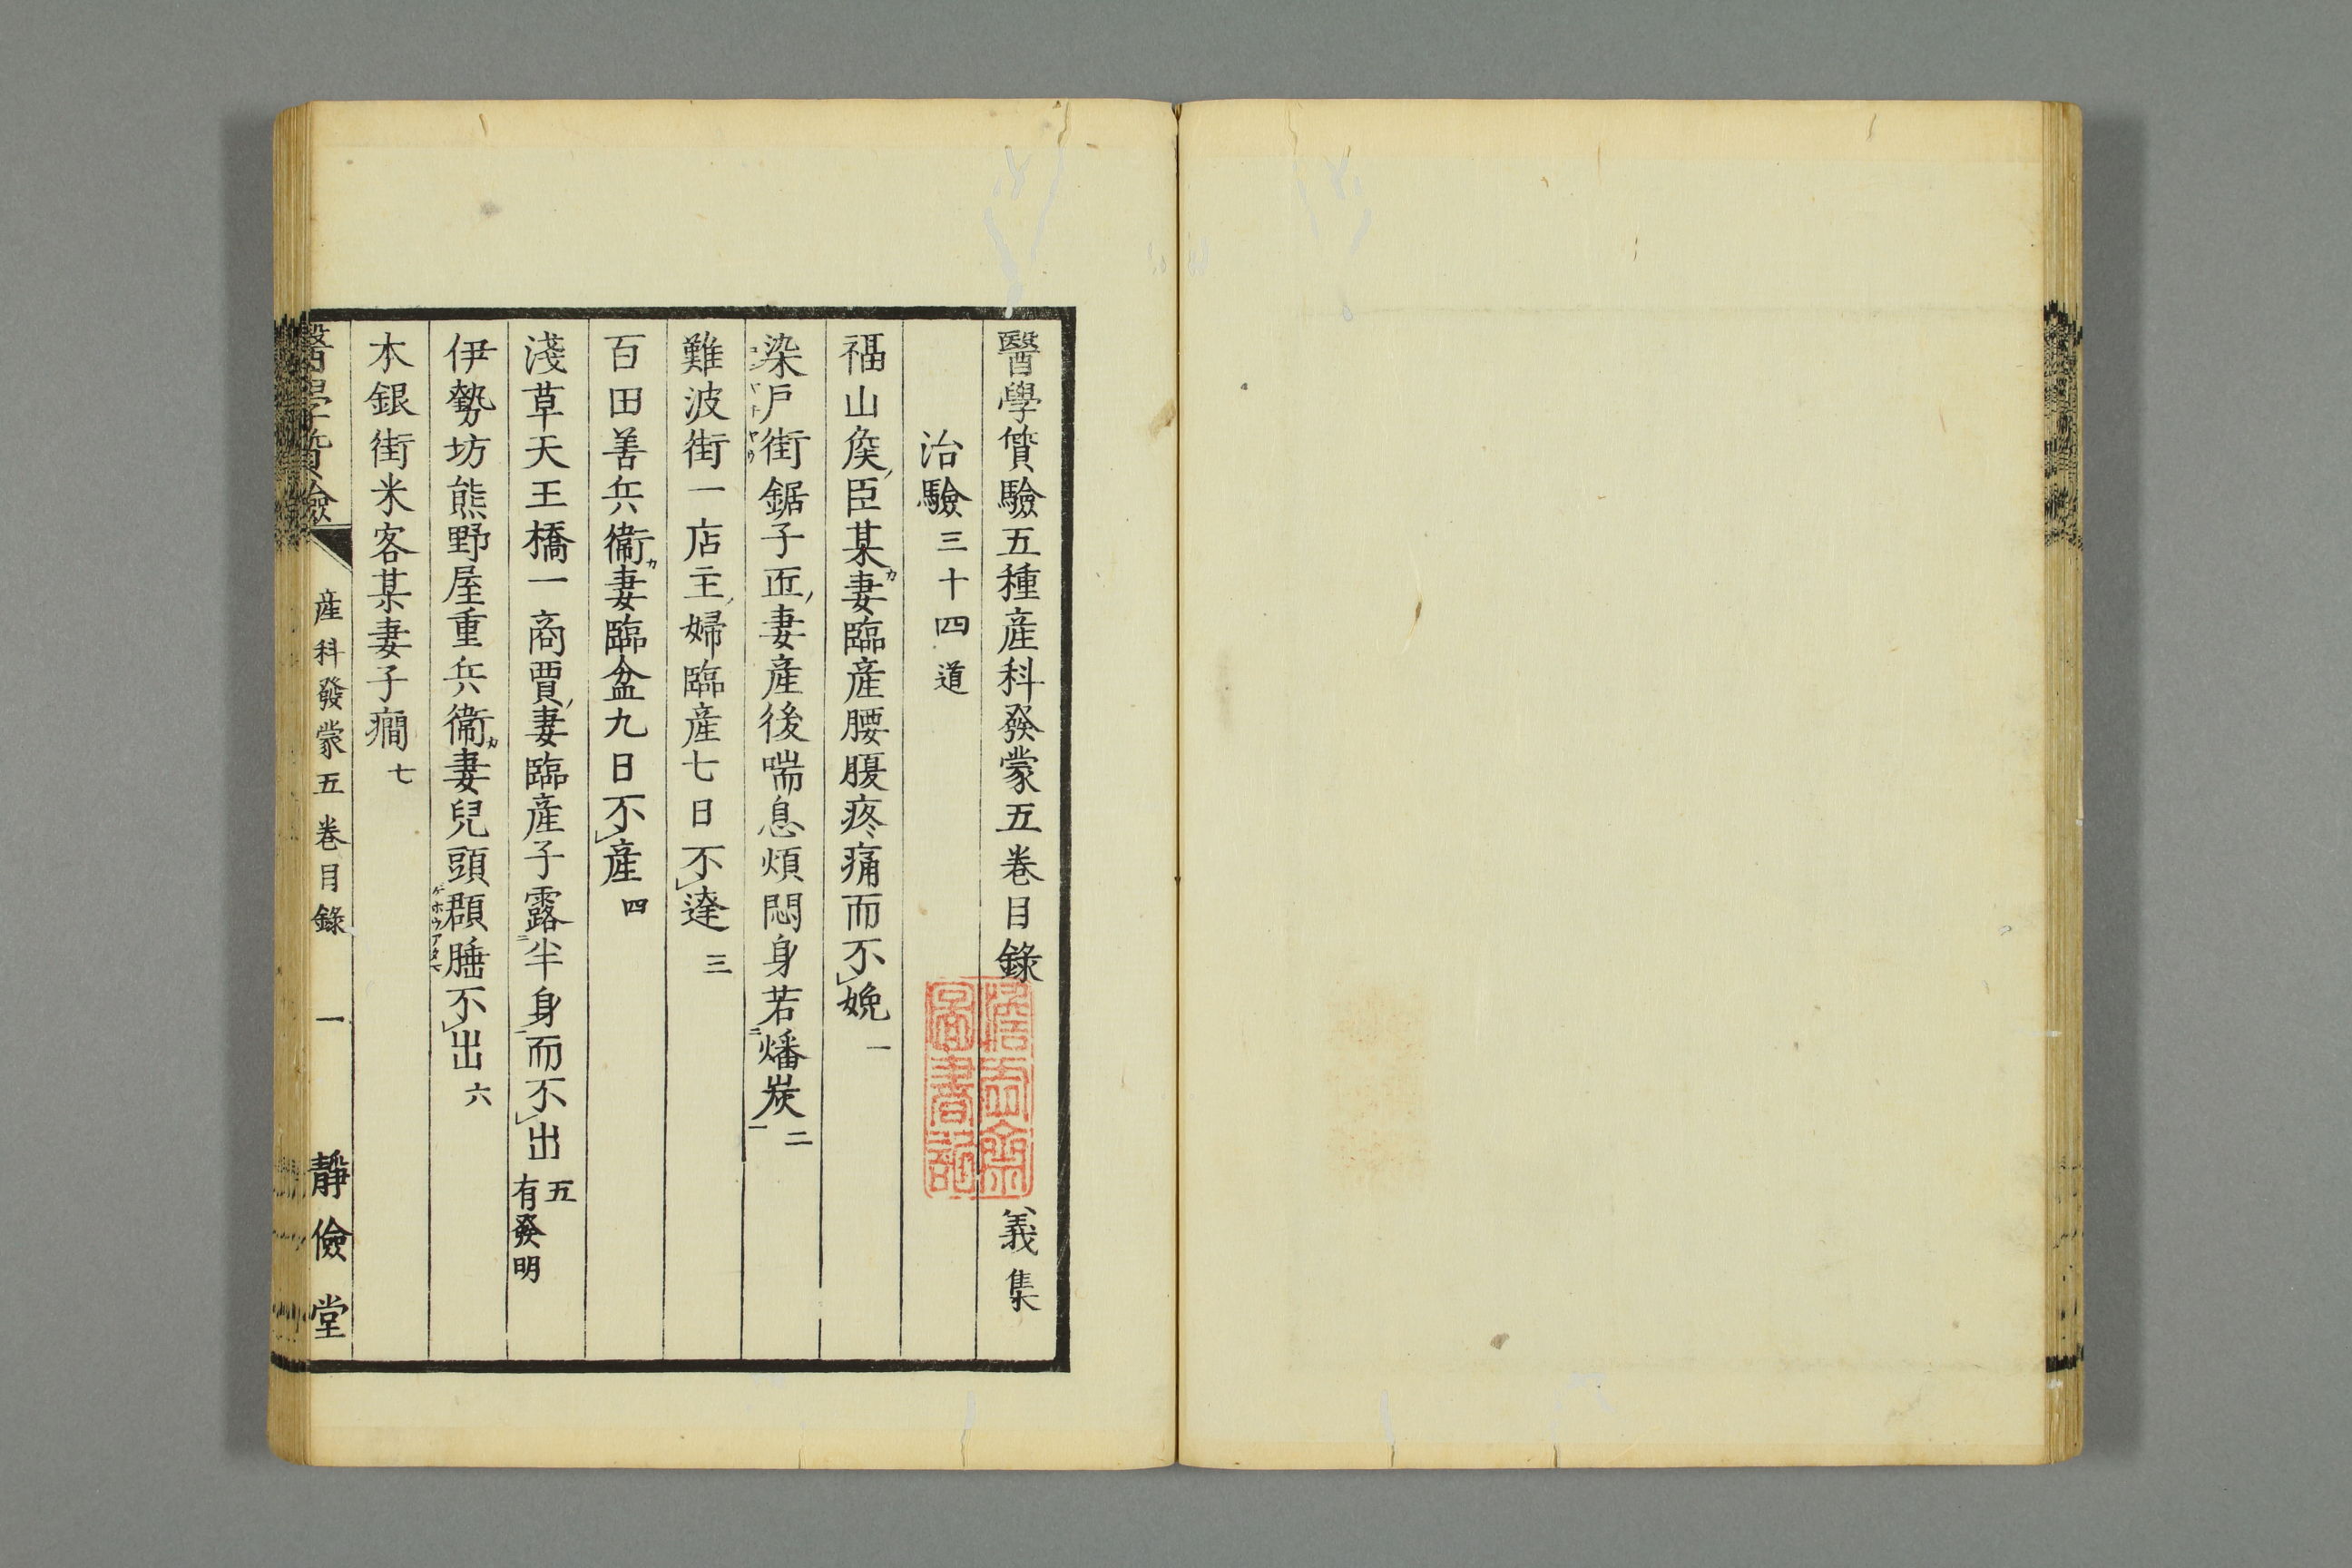 醫學質驗五種産科發蒙五卷目錄 義集
治驗三十四道
福山矦臣某カ妻臨産腰腹疼痛而不娩 一
染戸街鋸子匠妻産後喘息煩悶身若燔炭 二
難波街一店主婦臨産七日不達 三
百田善兵衞カ妻臨盆九日不産 四
淺草天王橋一商賈妻臨産子露半身而不出 五 有發明
伊勢坊熊野屋重兵衞カ妻兒頭䫒腄不出 六
本銀街米客某妻子癇 七
醫學質驗 産科發蒙五卷目錄 一 靜儉堂